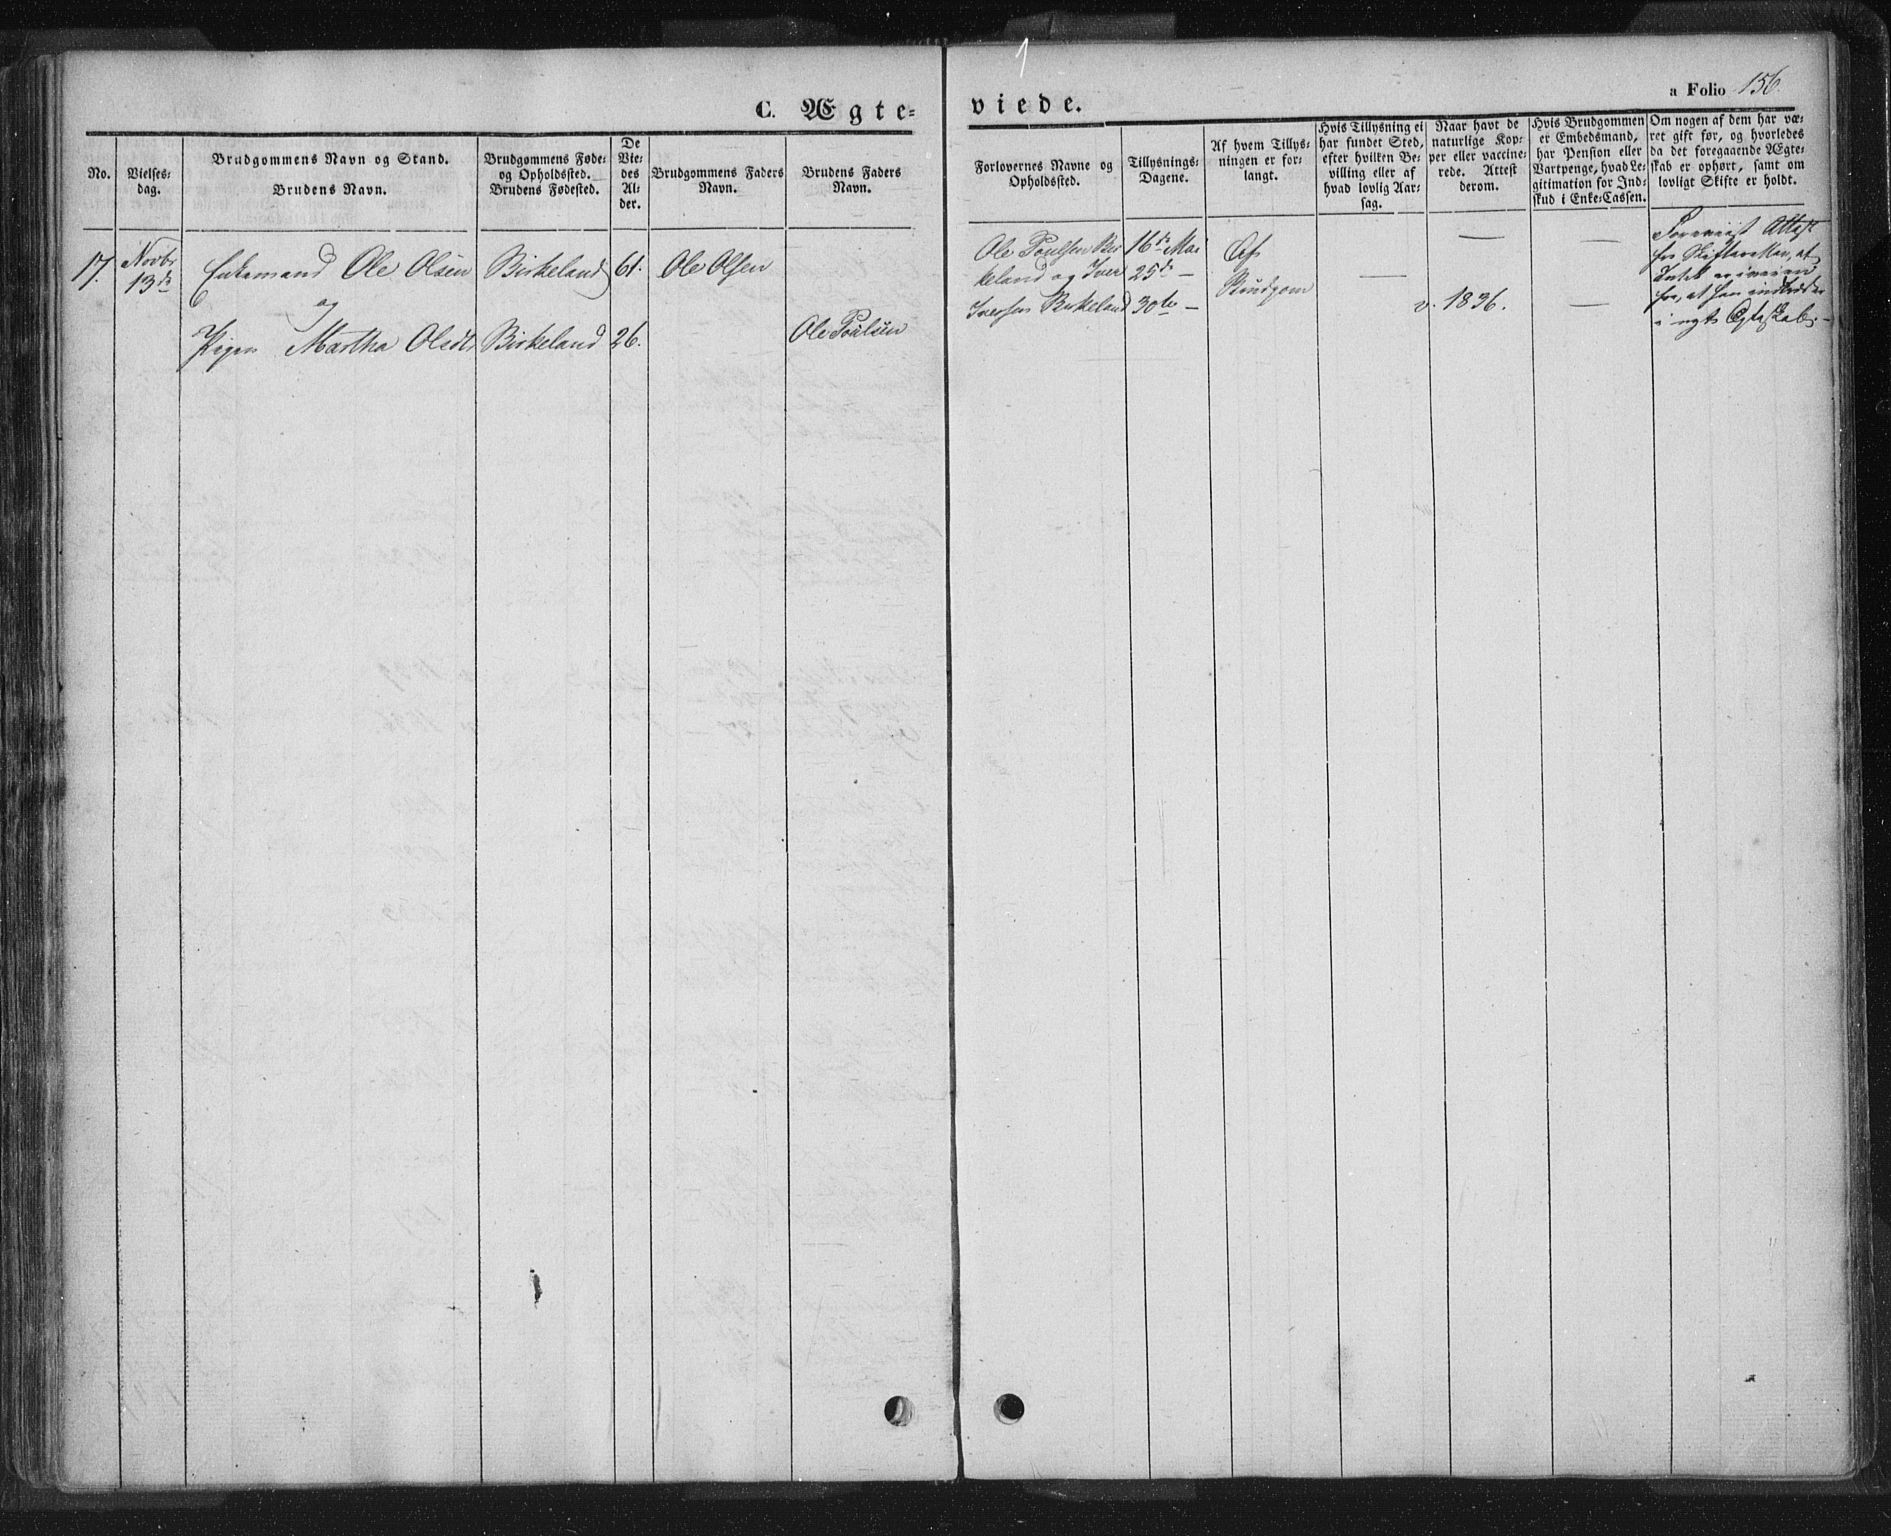 C. Ægte-
viede.
a Folio 156.
No.
Vielses-
dag.
Brudgommens Navn og Stand.
Brudens Navn.
Brudgommens Føde-
og Opholdssted.
Brudens Fødested.
De
Vie-
des
Al-
der.
Brudgommens Faders
Navn.
Brudens Faders
Navn.
Forlovernes Navne og
Opholdssted.
Tillysnings-
Dagene.
Af hvem Tillys-
ningen er for-
langt.
Hvis Tillysning ei
har fundet Sted,
efter hvilken Be-
villing eller af
hvad lovlig Aar-
sag.
Naar havt de
naturlige Kop-
per eller vaccine-
rede. Attest
derom.
Hvis Brudgommen
er Embedsmand,
har Pension eller
Vartpenge, hvad Le-
gitimation for Ind-
skud i Enke-Cassen.
Om nogen af dem har væ-
ret gift før, og hvorledes
da det foregaaende Ægte-
skab er ophørt, samt om
lovligt Skifte er holdt.
17.
Novbr
13de
Enkemand Ole Olsen
og
Pigen Martha Olsdt
Birkeland
Birkeland
61.
26.
Ole Olsen
Ole Poulsen
Ole Poulsen Bir
keland og Iver
Iversen Birkeland
16de Mai
25de —
30te —
Af
Brudgom
—
—
v. 1836.
—
—
Foreviist Attest
fra Skifteretten, at
Intet er i veien
for, at han indtræder
i nyt Egteskab. —